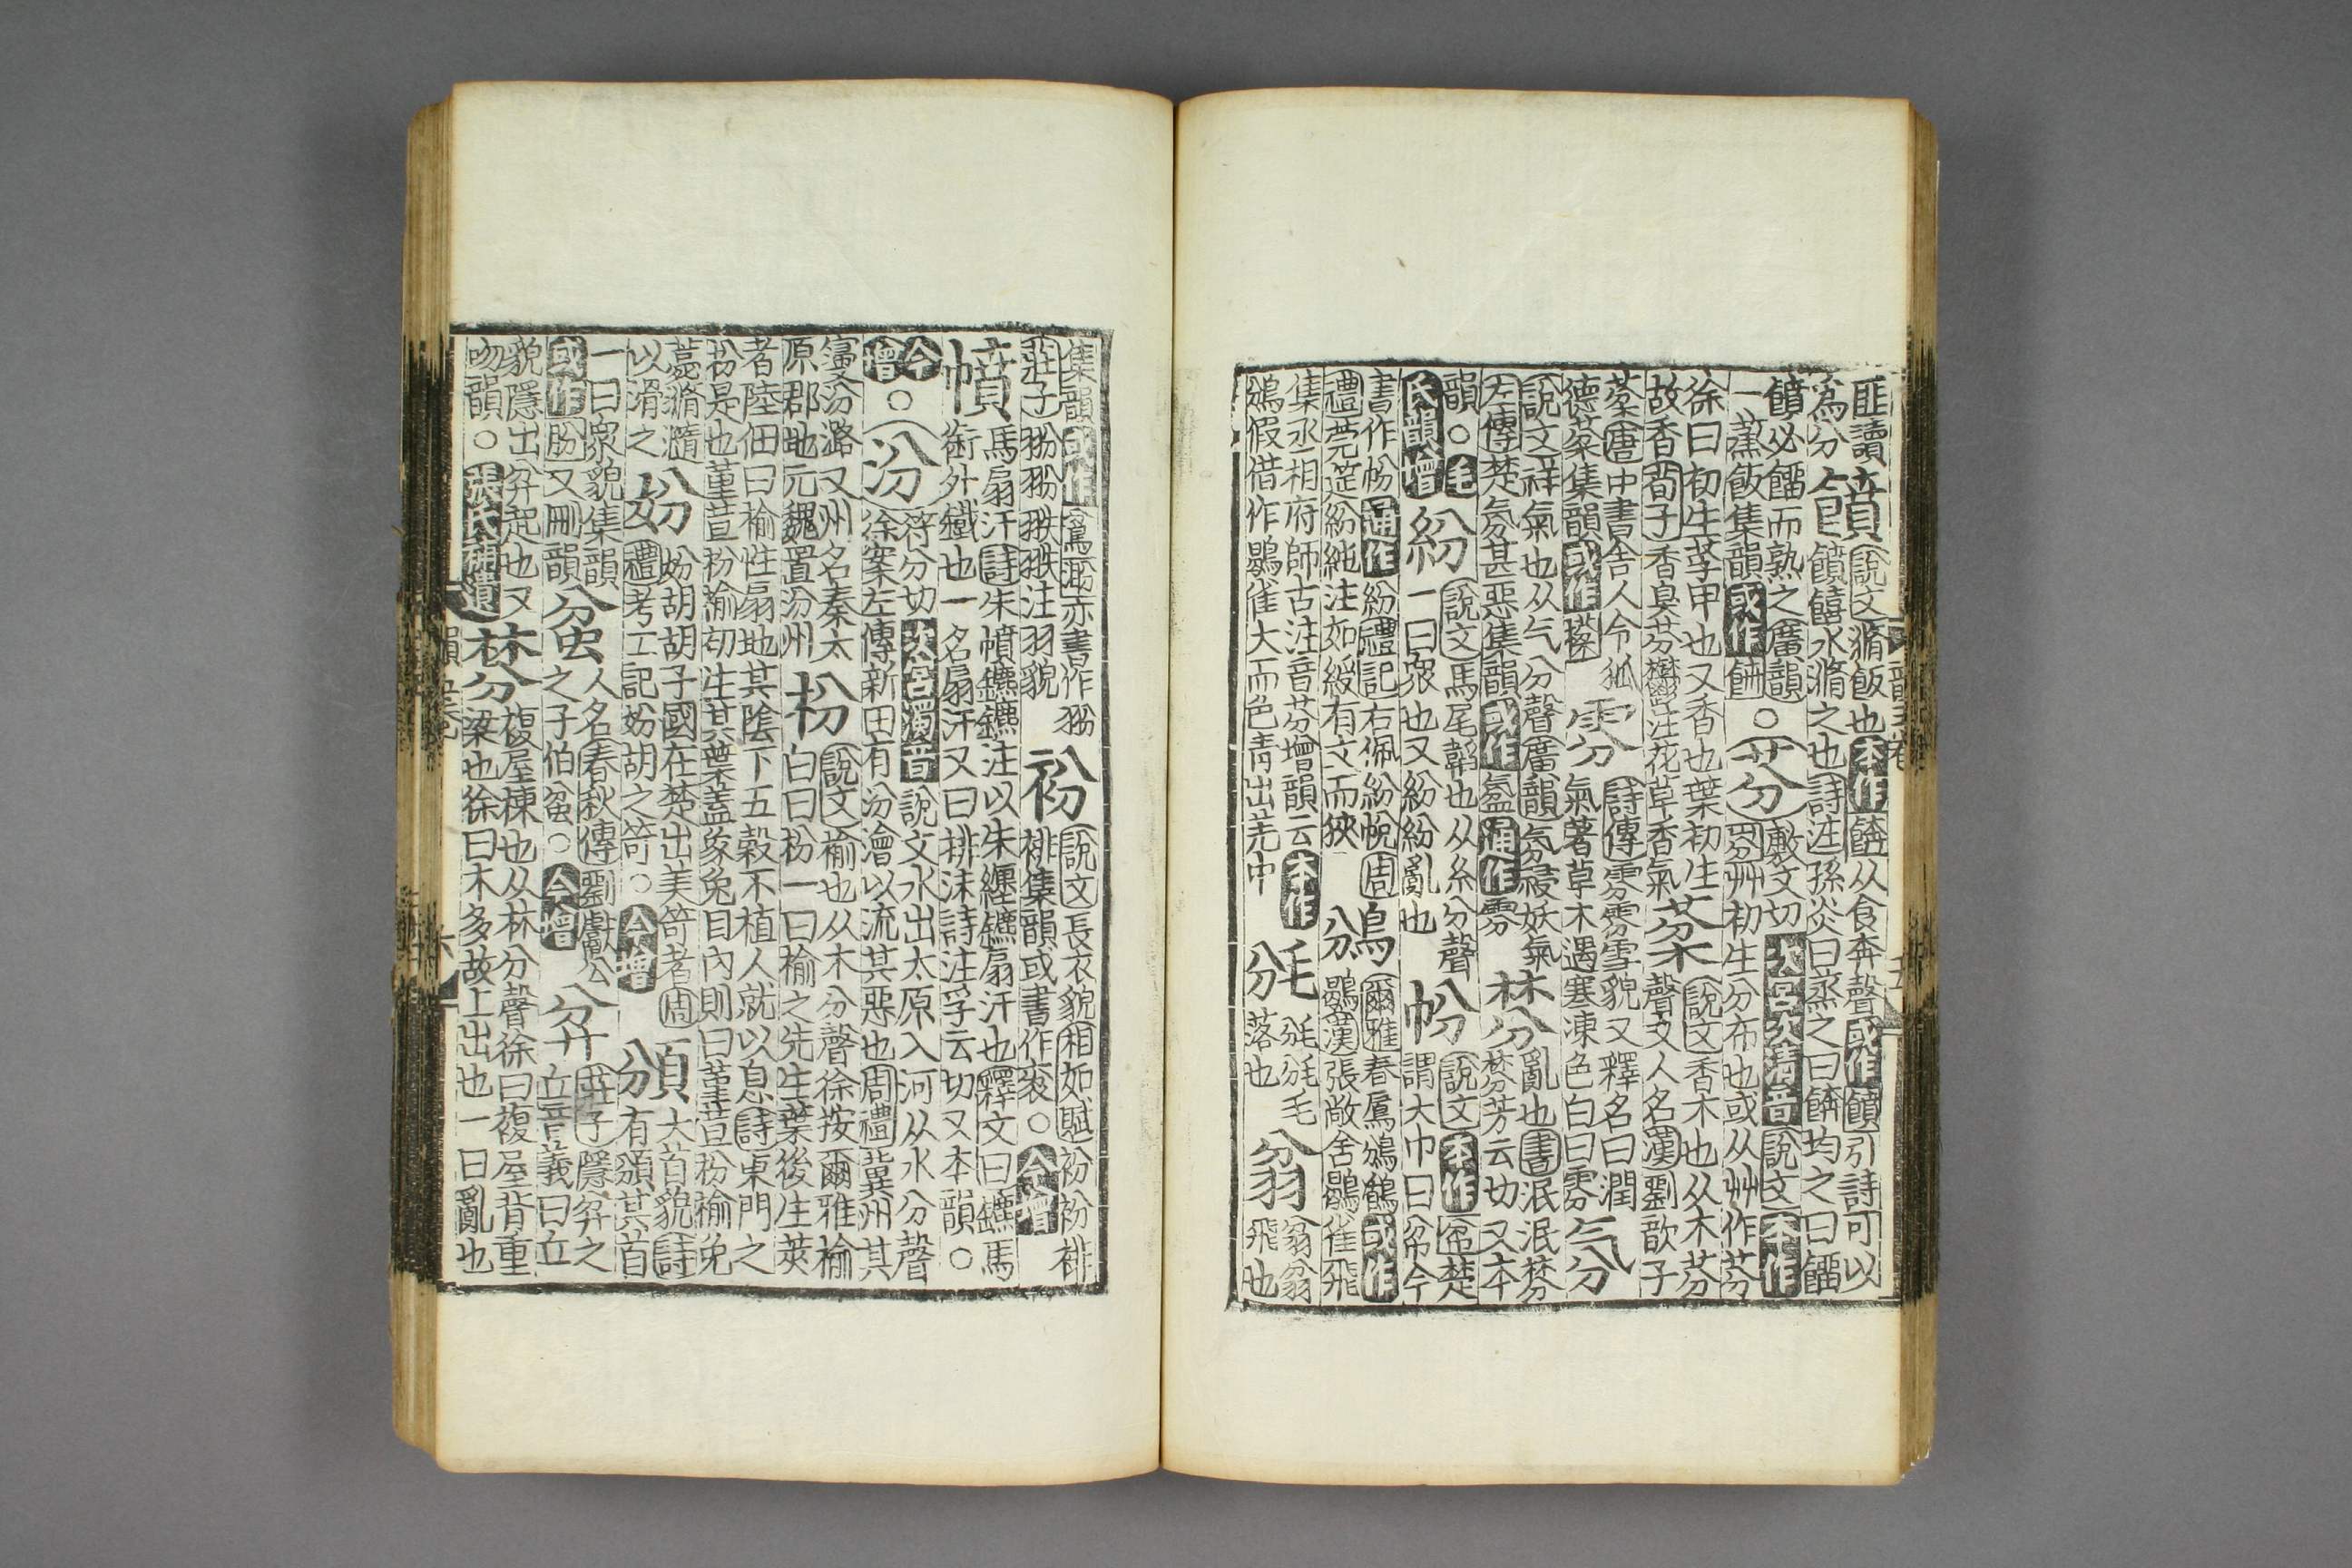 匪讀
爲分
饙
說文滫飯也本作𩜾从食奔聲或作饙引詩可以
饙饎水滫之也詩注孫炎曰蒸之曰𩜾均之曰餾
饙必餾而熟之廣韻
一蒸飯集韻或作餴○
芬
敷文切次宮次清音說文本作
芬艸初生分布也或从艸作芬
徐曰初生孚甲也又香也葉初生
故香荀子香臭芬鬱注花草香氣
棻
說文香木也从木芬
聲又人名漢劉歆子
棻唐中書舍人令狐
德棻集韻或作
雰
詩傳雰雰雪貌又釋名曰潤
氣著草木遇寒凍色白曰雰
氛
說文祥氣也从气分聲廣韻氛祲妖氣
左傳楚氛甚惡集韻或作通作雰
棼
亂也書泯泯棼
棼芳云切又本
韻○毛
氏韻增
紛
說文馬尾韜也从糸分聲
一曰衆也又紛紛亂也
帉
說文本作㡀楚
謂大巾曰㡀今
書作帉通作紛禮記右佩紛帨周
禮莞筵紛純注如綬有文而狹
鳻
爾雅春鳸鳻鶞或作
鶡漢張敞舍鶡雀飛
集丞相府師古注音芬增韻云本作
鳻假借作鶡雀大而色青出羌中
㲈
㲈㲈毛
落也
翁
翁翁
飛也
集韻或作亦書作翂
莊子翂翂翐翐注羽貌
衯
說文長衣貌相如賦衯衯裶
裶集韻或書作○今增
幩
馬扇汗詩朱幩鑣鑣注以朱纏鑣扇汗也釋文曰鑣馬
銜外鐵也一名扇汗又曰排沫詩注孚云切又本韻○
今增○
汾
符分切次宮濁音說文水出太原入河从水分聲
徐案左傳新田有汾澮以流其惡也周禮冀州其
寖汾潞又州名秦太
原郡地元魏置汾州
枌
說文榆也从木分聲徐按爾雅榆
白曰枌一曰榆之先生葉後生莢
者陸佃曰榆性扇地其陰下五穀不植人就以息詩東門之
枌是也菫荁枌榆初生其葉蓋象兔目內則曰菫荁枌榆免
薧滫瀡
以滑之
妢
禮考工記妢胡之笴
妢胡胡子國在楚出美笴者周
○今增
頒
大首貌詩
有頒其首
一曰衆貌集韻
或作朌又刪韻
蚠
人名春秋傳劉獻公
之子伯蚠○今增
弅
莊子隱弅之
丘音義曰丘
貌隱出弅起也又
吻韻○張氏補遺
棼
複屋棟也从林分聲徐曰複屋背重
梁也徐曰木多故上出也一曰亂也